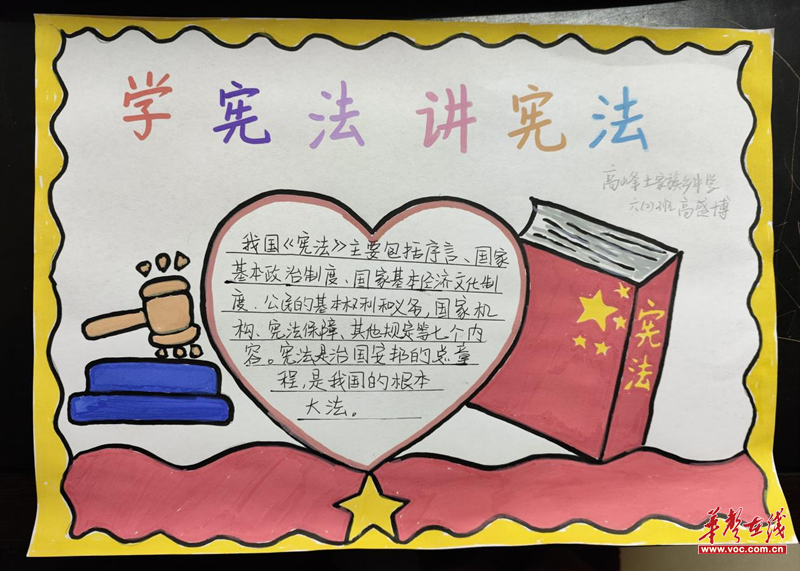 学宪法 讲宪法
高峰土家族乡中学
六(2)班 高盛博
我国《宪法》主要包括序言、国家
基本政治制度、国家基本经济文化制
度、公民的基本权利和义务,国家机
构、宪法保障、其他规定等七个内
容。宪法是治国安邦的总章
程,是我国的根本
大法。
宪法
华声在线
www.voc.com.cn